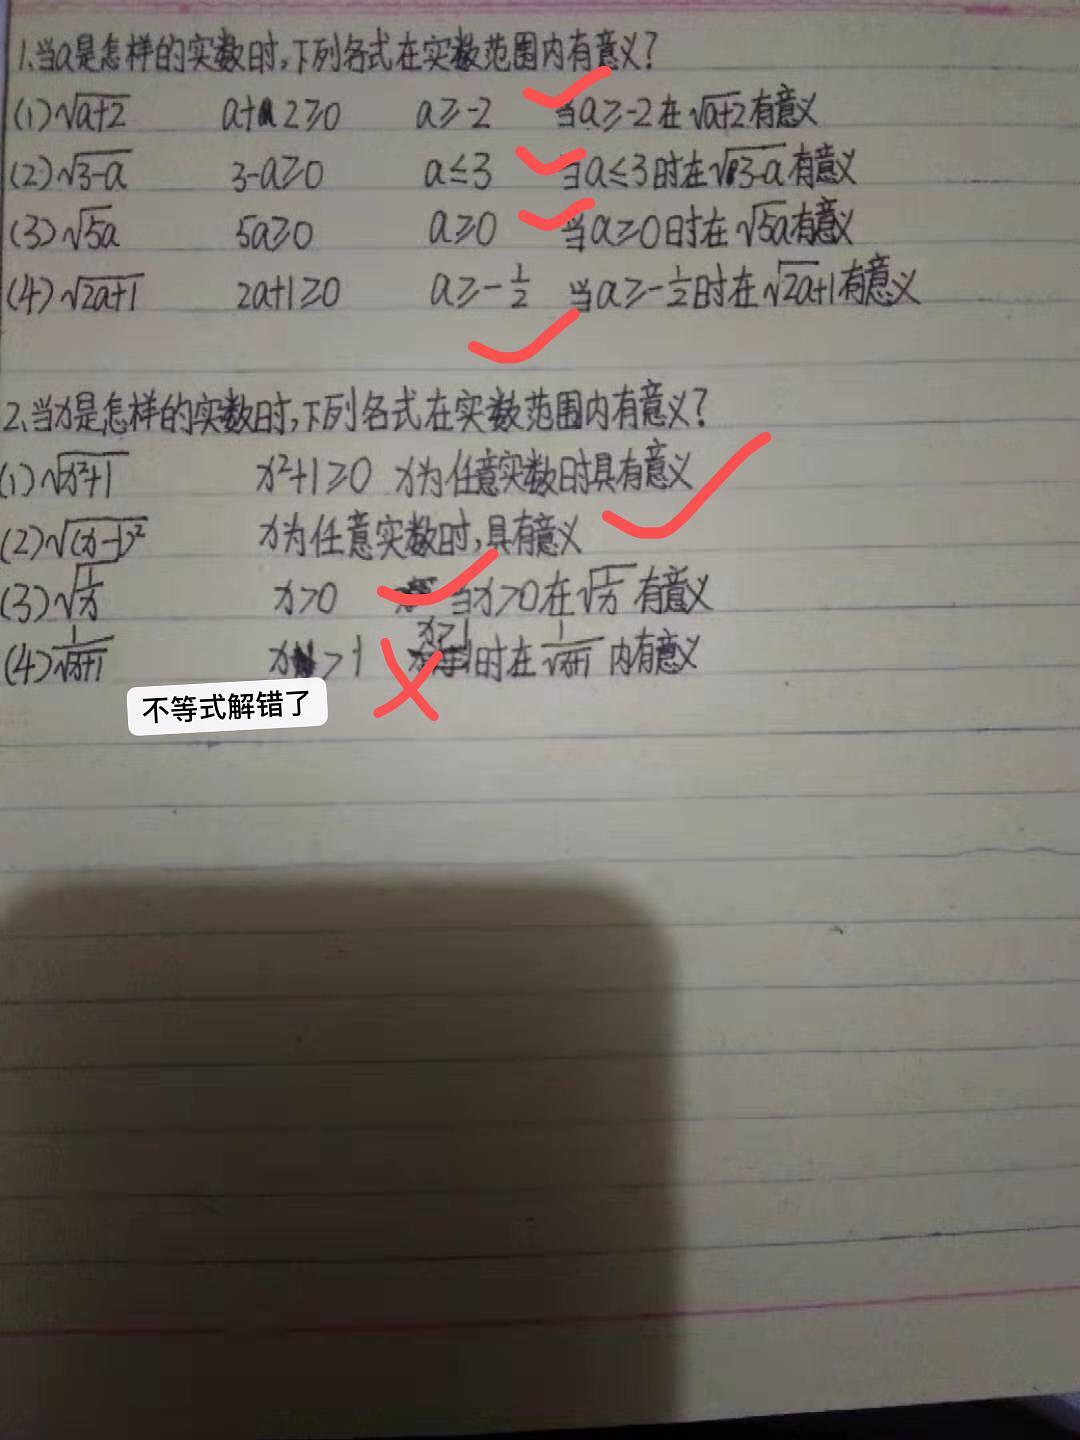 1.当a是怎样的实数时,下列各式在实数范围内有意义?
(1)√a+2 a+2≥0 a≥-2 当a≥-2在√a+2有意义
(2)√3-a 3-a≥0 a≤3 当a≤3时在√3-a有意义
(3)√5a 5a≥0 a≥0 当a≥0时在√5a有意义
(4)√2a+1 2a+1≥0 a≥-1/2 当a≥-1/2时在√2a+1有意义
2.当x是怎样的实数时,下列各式在实数范围内有意义?
(1)√x²+1 x²+1≥0 x为任意实数时具有意义
(2)√(x-1)² x为任意实数时,具有意义
(3)√1/x x>0 当x>0在√1/x有意义
(4)1/√x+1 x>1 x>1时在1/√x+1内有意义
不等式解错了